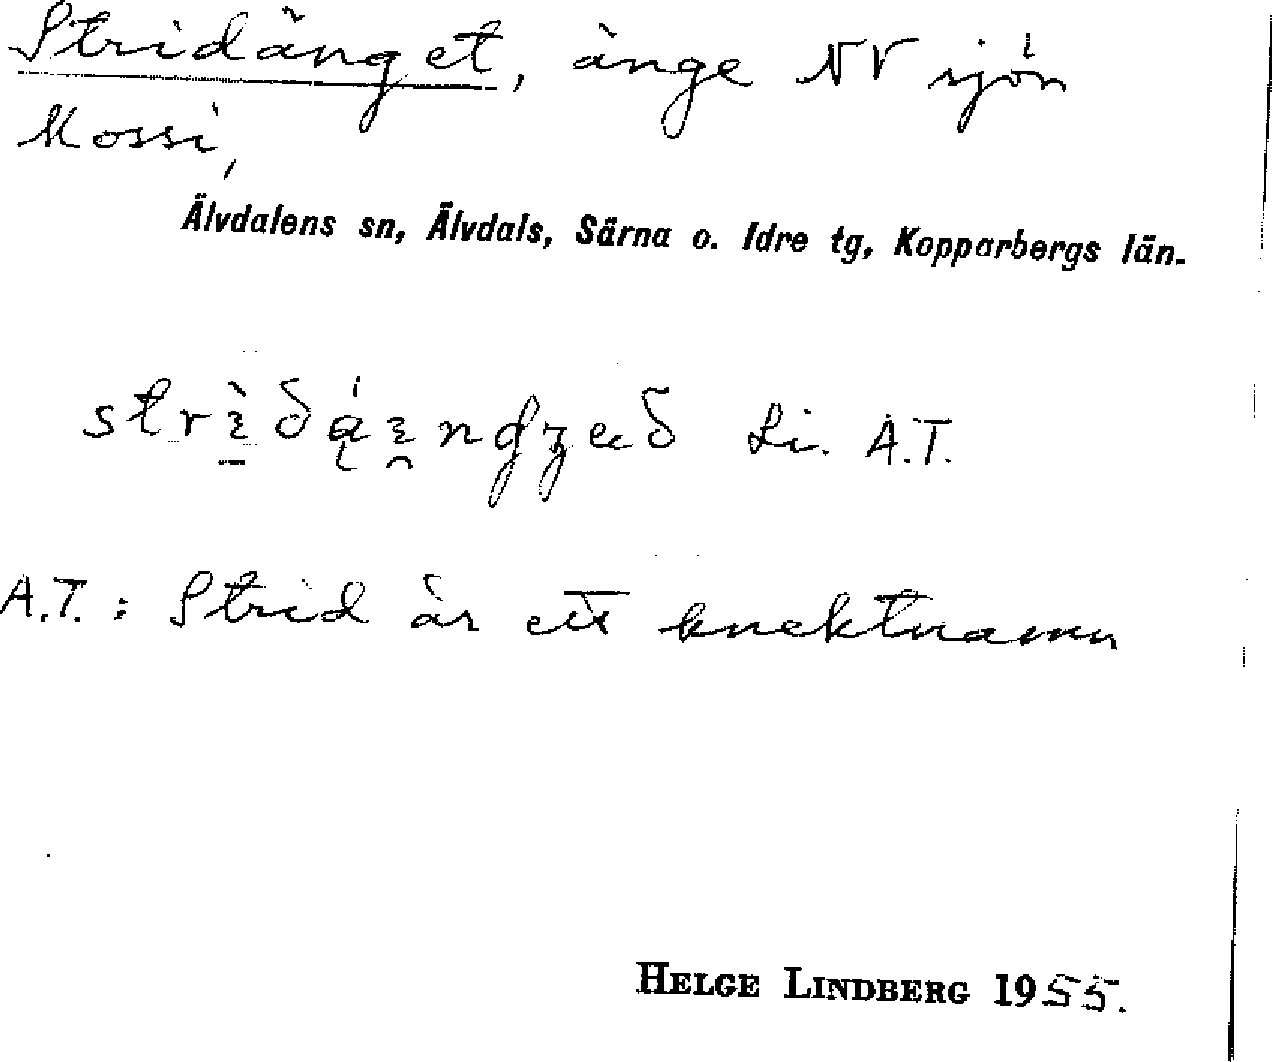 Stridänget, änge NV sjön
Mossi,
Älvdalens sn, Älvdals, Särna o. Idre tg, Kopparbergs län.
Li. A.T.
A.T. : Strid är ett knektnamn
HELGE LINDBERG 1955.